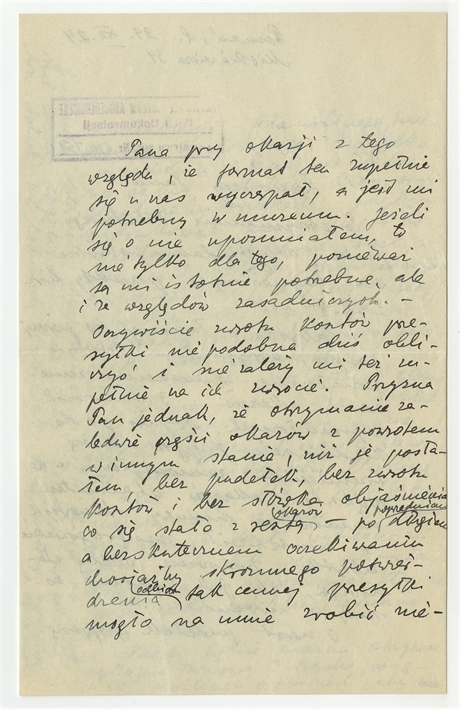 Pana przy okazji z tego
względu, że format ten zupełnie
się u nas wyczerpał, a jest mi
potrzebny w muzeum. Jeżeli
się o nie upomniałem, to
nie tylko dla tego, ponieważ
są mi istotnie potrzebne, ale
i ze względów zasadniczych. –
Oczywiście zwrotu kosztów prze-
syłki niepodobna dziś obli-
czyć i nie zależy mi też zu-
pełnie na ich zwrocie. Przyzna
Pan jednak, że otrzymanie za-
ledwie części okazów z powrotem
w innym stanie, niż je posła-
łem, bez pudełek, bez zwrotu
kosztów i bez słówka objaśnienia
co się stało z resztą okazów – po poprzedniem długiem
a bezskutecznem oczekiwaniu
chociażby skromnego potwier-
dzenia odbioru tak cennej przesyłki
mogło na mnie zrobić nie-